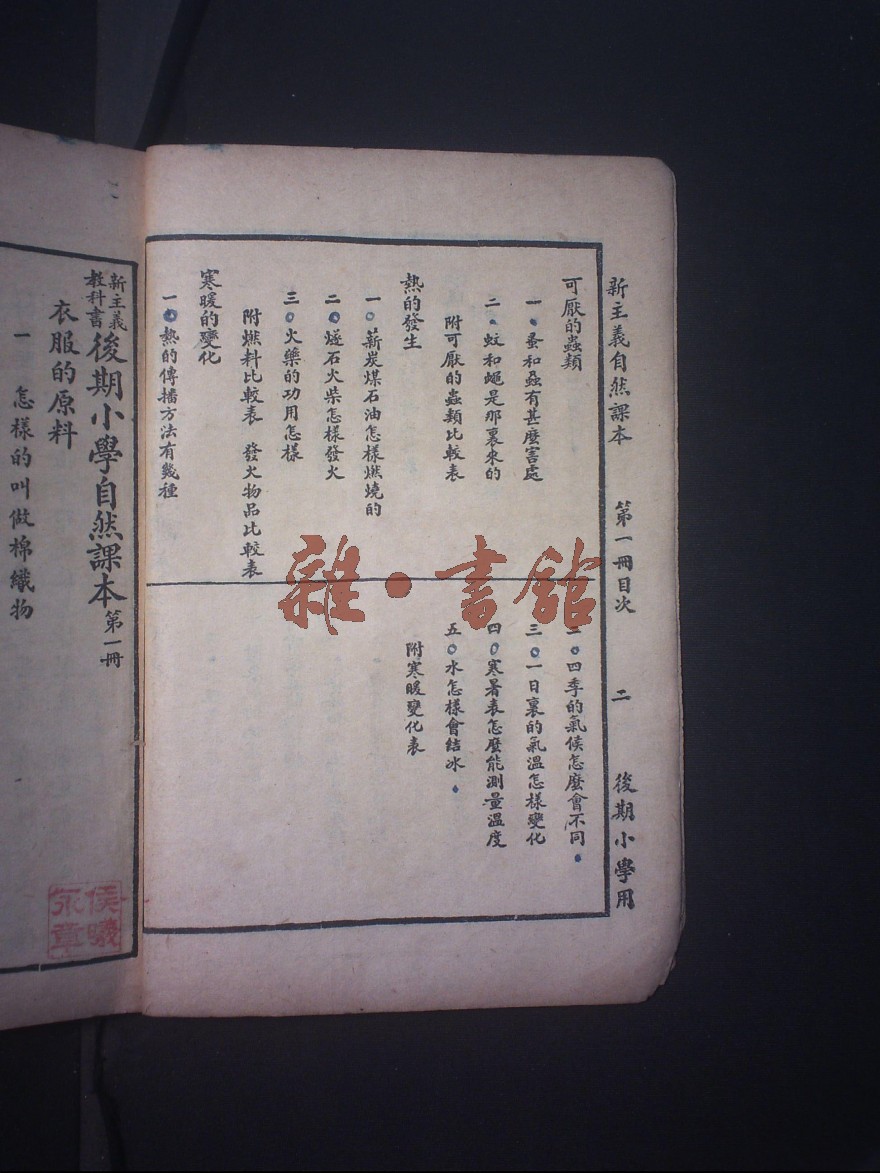 新主義自然課本 第一冊目次 二 後期小學用
可厭的蟲類
一 蚤和蝨有甚麼害處
二 蚊和蠅是那裏來的
附可厭的蟲類比較表
熱的發生
一 薪炭煤石油怎樣燃燒的
二 燧石火柴怎樣發火
三 火藥的功用怎樣
附燃料比較表 發火物品比較表
寒暖的變化
一 熱的傳播方法有幾種
二 四季的氣候怎麼會不同
三 一日裏的氣溫怎樣變化
四 寒暑表怎麼能測量溫度
五 水怎樣會結冰
附寒暖變化表
新主義教科書 後期小學自然課本 第一冊
衣服的原料
一 怎樣的叫做棉織物
侯曦永章
雜·書館